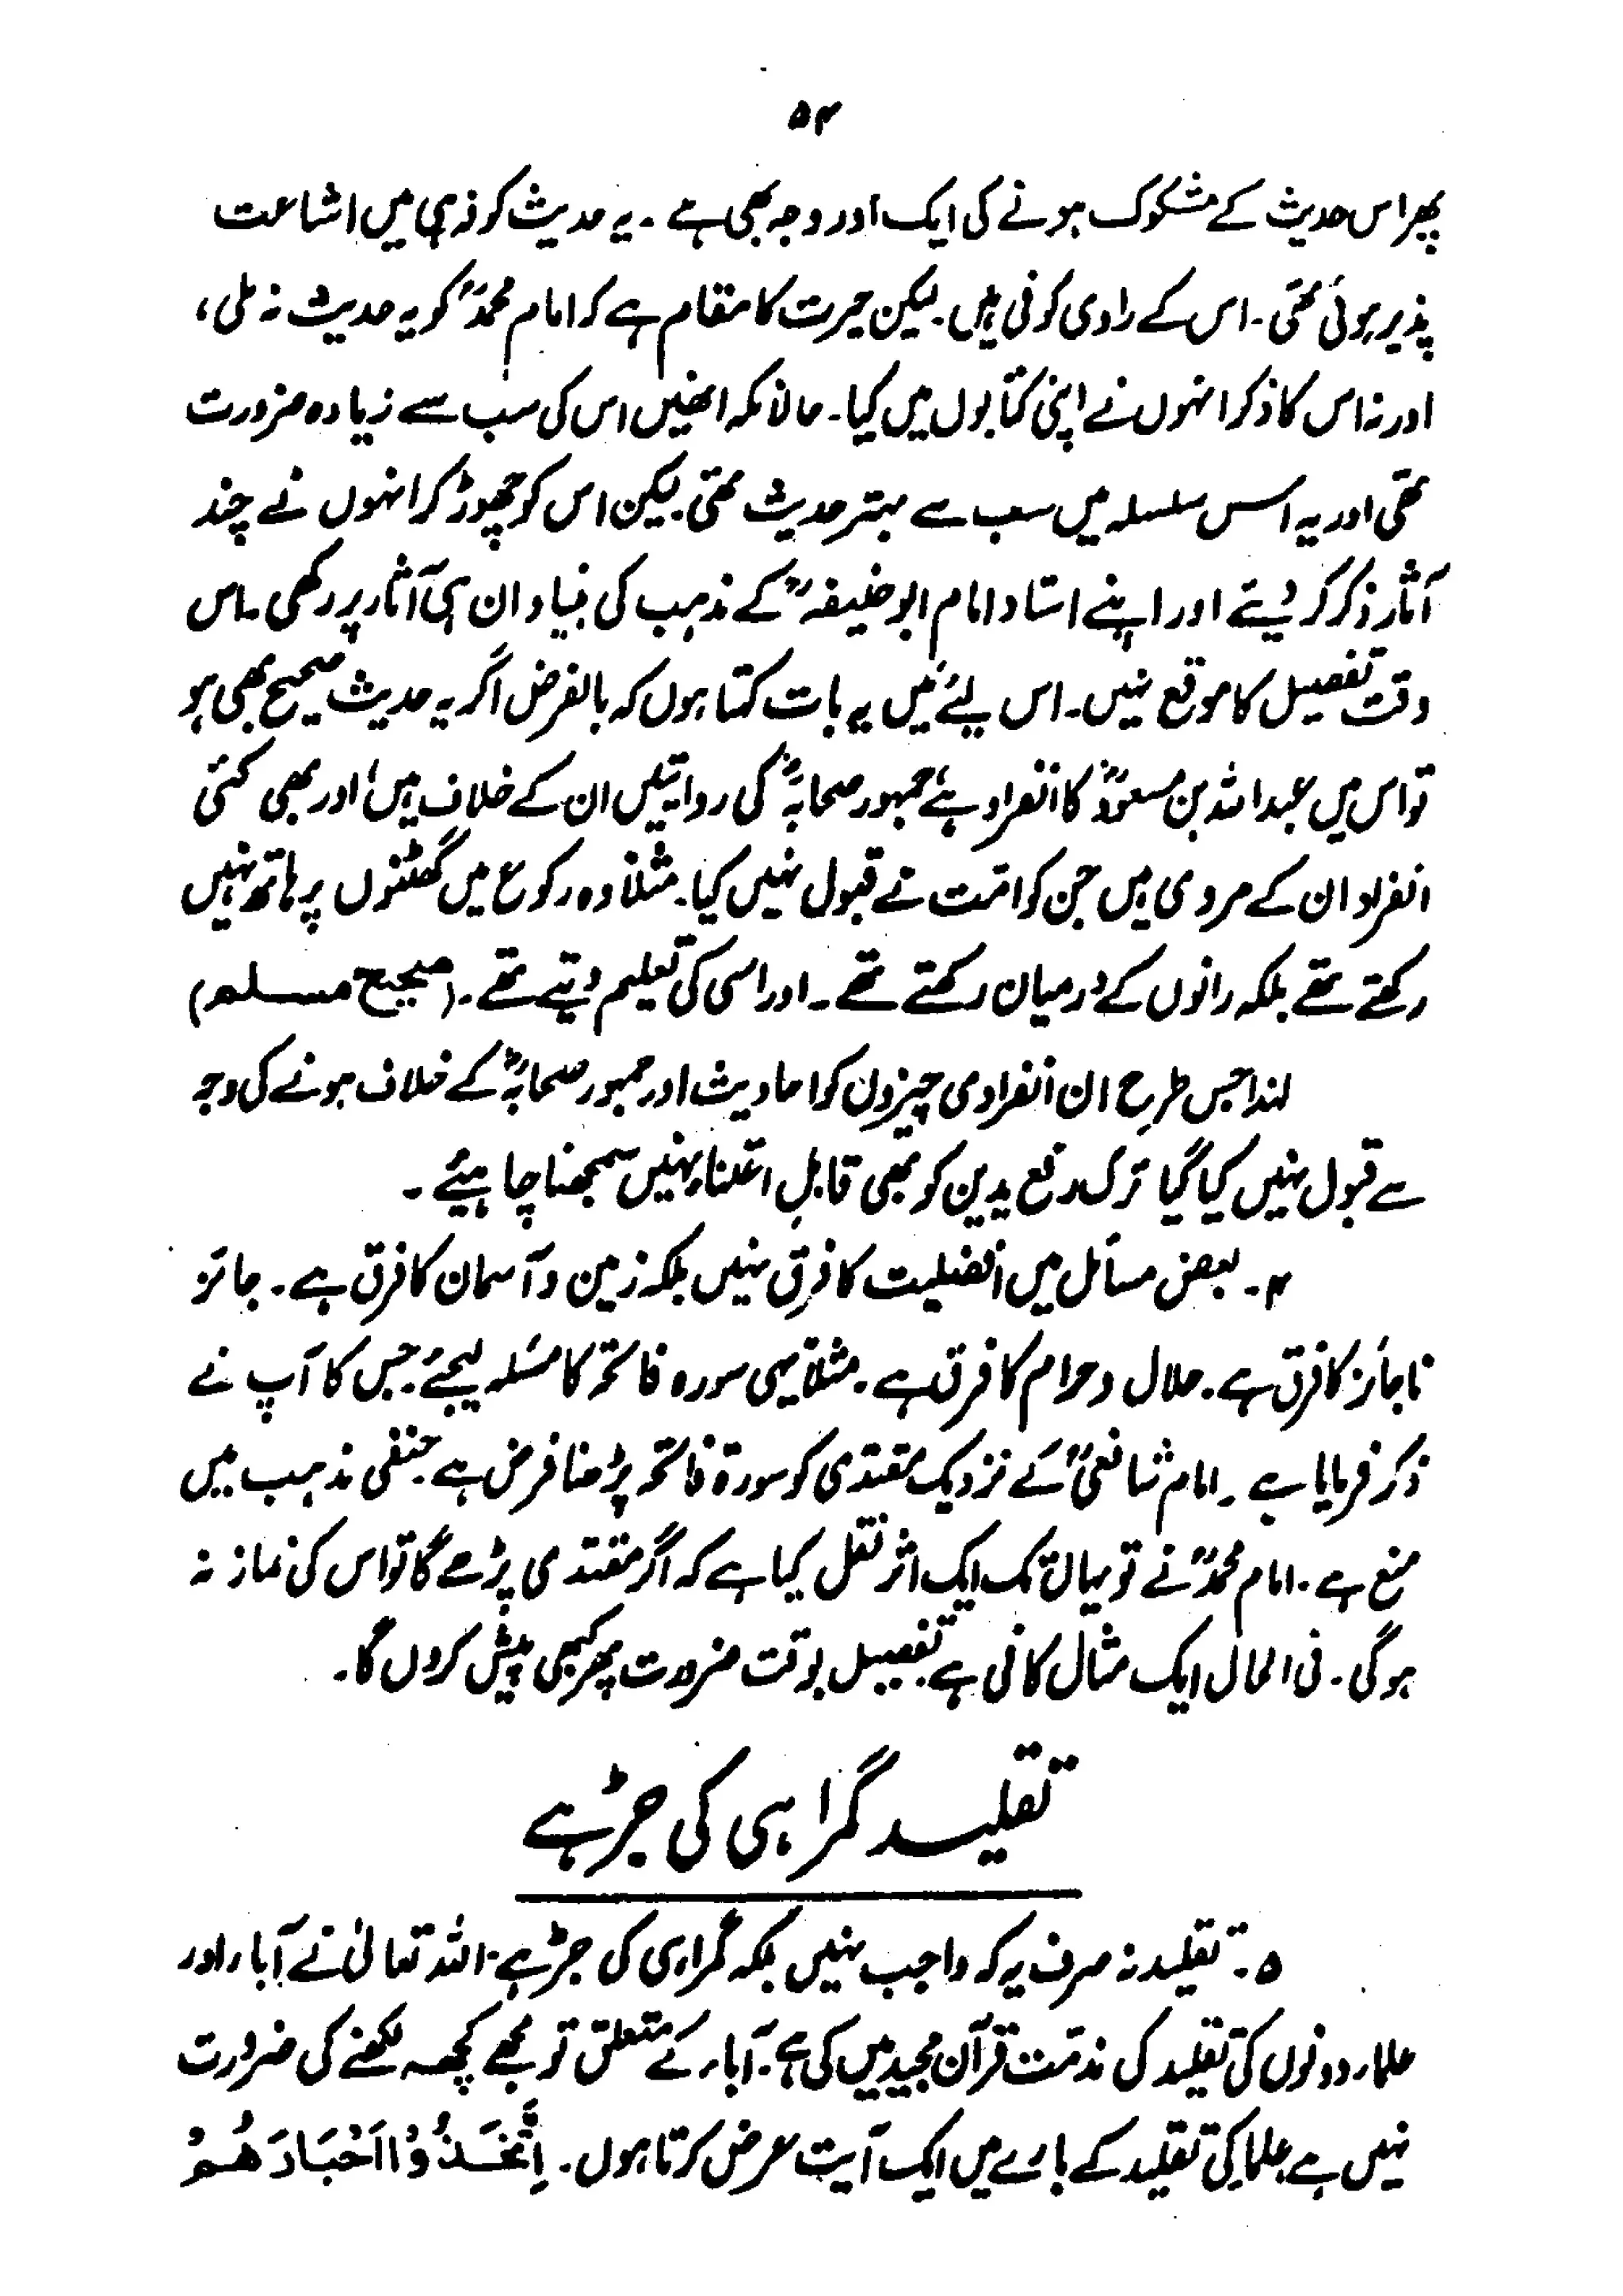 ۵۴
پھر اس حدیث کے مشکوک ہونے کی ایک اور وجہ بھی ہے ۔ یہ حدیث کوفہ ہی میں اشاعت
پذیر ہوئی تھی ۔ اس کے راوی کوفی ہیں۔ لیکن حیرت کا مقام ہے کہ امام محمدؒ کو یہ حدیث نہ ملی ،
اور نہ اس کا ذکر انہوں نے اپنی کتابوں میں کیا۔ حالانکہ انھیں اس کی سب سے زیادہ ضرورت
تھی اور یہ اس سلسلہ میں سب سے بہتر حدیث تھی۔ لیکن اس کو چھوڑ کر انہوں نے چند
آثار ذکر کر دیئے اور اپنے استاد امام ابو حنیفہؒ کے مذہب کی بنیاد ان ہی آثار پر رکھی ۔ اس
وقت تفصیل کا موقع نہیں۔ اس لیئے میں یہ بات کہتا ہوں کہ بالفرض اگر یہ حدیث صحیح بھی ہو
تو اس میں عبد اللہ بن مسعودؓ کا انفراد ہے جمہور صحابہؓ کی روایتیں ان کے خلاف ہیں اور بھی کئی
انفراد ان کے مروی ہیں جن کو امّت نے قبول نہیں کیا۔ مثلاً وہ رکوع میں گھٹنوں پر ہاتھ نہیں
رکھتے تھے بلکہ رانوں کے درمیان رکھتے تھے ۔ اور اسی کی تعلیم دیتے تھے ۔ (صحیح مسلم)
لہٰذا جس طرح ان انفرادی چیزوں کو احادیث اور جمہور صحابہؓ کے خلاف ہونے کی وجہ
سے قبول نہیں کیا گیا ترک رفع یدین کو بھی قابلِ اعتناء نہیں سمجھنا چاہیئے ۔
۴ ۔ بعض مسائل میں افضلیت کا فرق نہیں بلکہ زمین و آسمان کا فرق ہے ۔ جائز
ناجائز کا فرق ہے ۔ حلال و حرام کا فرق ہے ۔ مثلاً یہی سورہ فاتحہ کا مسئلہ لیجئے جس کا آپ نے
ذکر فرمایا ہے ۔ امام شافعیؒ کے نزدیک مقتدی کو سورۃ فاتحہ پڑھنا فرض ہے حنفی مذہب میں
منع ہے ۔ امام محمدؒ نے تو یہاں تک ایک اثر نقل کیا ہے کہ اگر مقتدی پڑھے گا تو اس کی نماز نہ
ہوگی ۔ فی الحال ایک مثال کافی ہے تفصیل بوقت ضرورت پھر کبھی پیش کروں گا ۔
تقلید گمراہی کی جڑ ہے
۵ ۔ تقلید نہ صرف یہ کہ واجب نہیں بلکہ گمراہی کی جڑ ہے ۔ اللہ تعالیٰ نے آباء اور
علماء دونوں کی تقلید کی مذمّت قرآن مجید میں کی ہے ۔ آباء کے متعلق تو مجھے کچھ لکھنے کی ضرورت
نہیں ہے علماء کی تقلید کے بارے میں ایک آیت عرض کرتا ہوں ۔ اِتَّخَذُوْا اَحْبَارَهُمْ